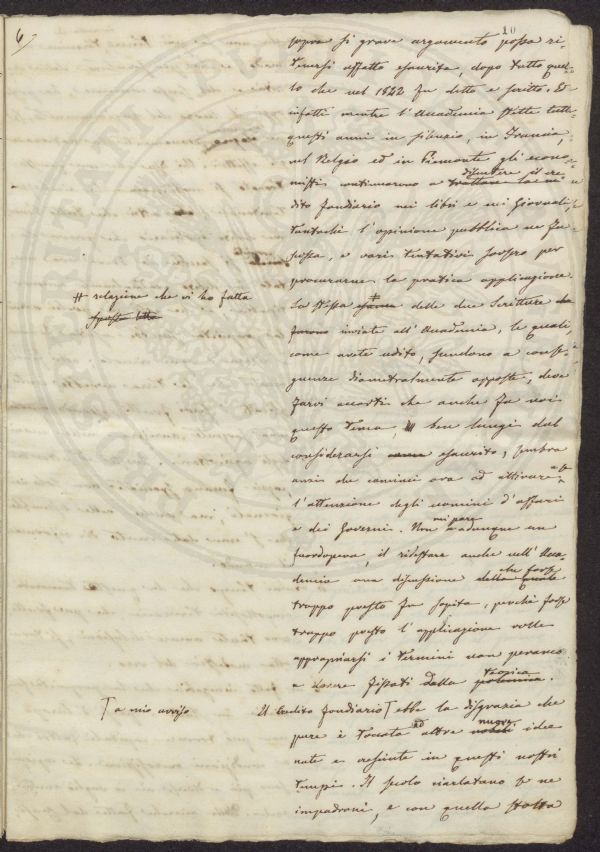 6)
10
sopra sì grave argomento possa ri-
tenersi affatto esaurita, dopo tutto quel-
lo che nel 1822 fu detto e scritto. E
infatti mentre l'Accademia stette tutti
questi anni in silenzio, in Francia,
nel Belgio ed in Piemonte gli econo-
misti continuarono a trattare discutere il cre-
dito fondiario nei libri e nei Giornali,
tantochè l'opinione pubblica ne fu
e vari tentativi sorsero per
procurarne la pratica applicazione.
La stessa #
# relazione che vi ho fatta
delle due Scritture
furono inviate all'Accademia, le quali
come avete udito, scendono a conse-
guenze diametralmente opposte, deve
farvi accorti che anche fra noi
questo tema, ben lungi dal
considerarsi esaurito, sembra
anzi che cominci ora ad attivare
l'attenzione degli uomini d'affari
e dei Governi. Non mi pare adunque un
fuordopera, il ridestare anche nell'Acca-
demia una discussione della quale che forse
troppo presto fu sopita, perchè forse
troppo presto l'applicazione volle
appropriarsi i termini non peranco
a dovere fissati dalla polemica teorica.
Il Credito fondiario ebbe la disgrazia che
a mio avviso
pure è toccata ad altre nuove idee
nate e cresciute in questi nostri
tempi. Il secolo ciarlatano se ne
impadronì, e con quella stolta